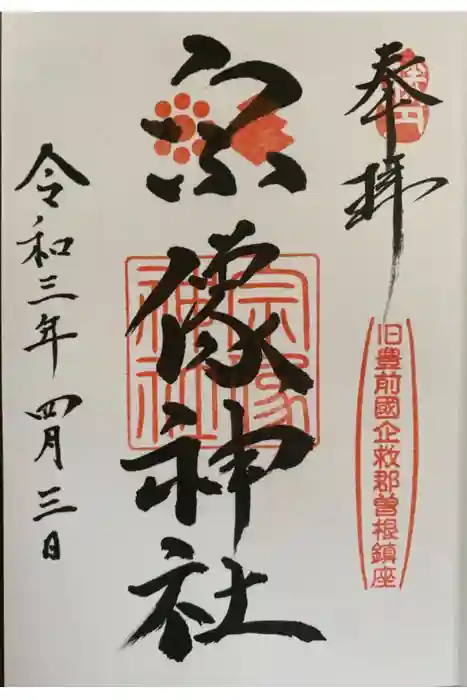 奉拝
旧豊前國企救郡曽根鎮座
宗像神社
宗像
神社
令和三年四月三日